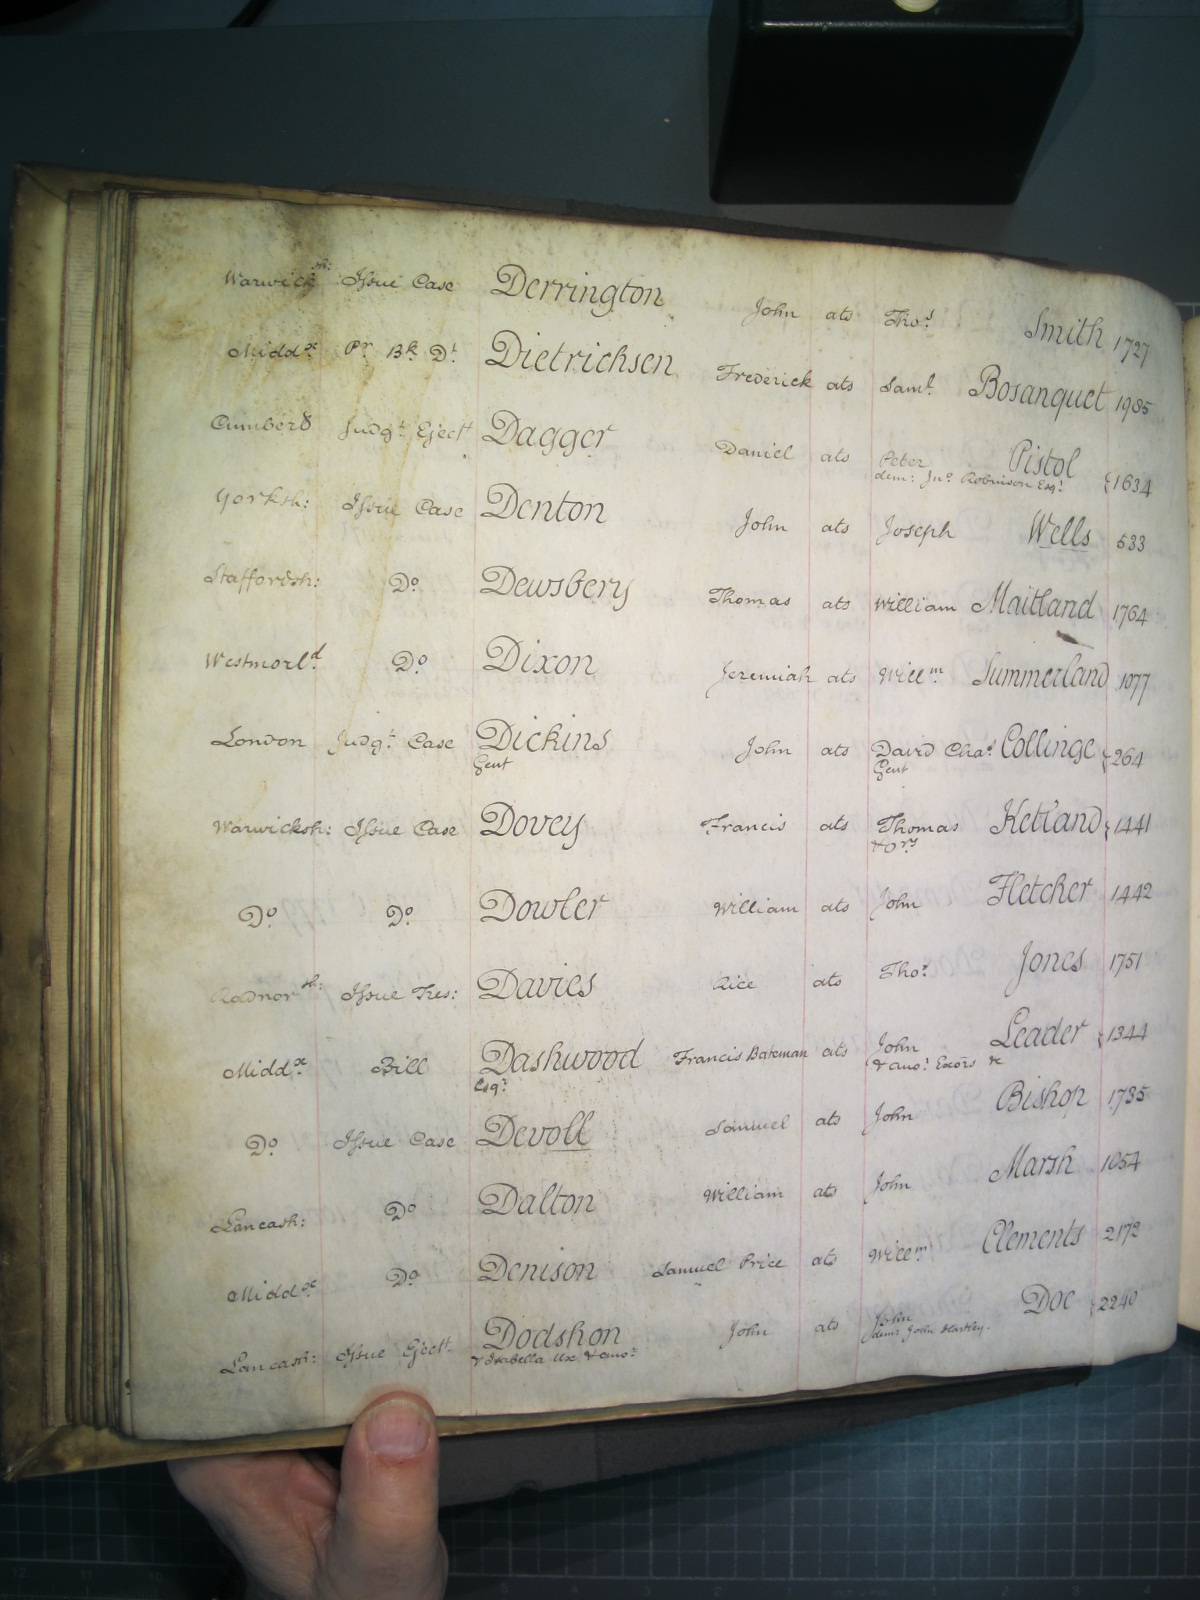 Warwick sh: Issue Case Derrington John ats Thos Smith 1727
Middx Pr Bk Dt Dietrichsen Frederick ats Saml Bosanquet 1985
Cumberd Judgt Ejectt Dagger Daniel ats Peter Pistol 1634
dem: Jno Robinson Esqr
Yorksh: Issue Case Denton John ats Joseph Wells 533
Staffordsh: Do Dewsbery Thomas ats William Maitland 1764
Westmorld Do Dixon Jeremiah ats Willm Summerland 1077
London Judgt Case Dickins John ats David Chas Collinge 264
Gent Gent
Warwicksh: Issue Case Dovey Francis ats Thomas Ketland 1441
& Ors
Do Do Dowler William ats John Fletcher 1442
Radnor sh: Issue Tres: Davies Rice ats Thos Jones 1751
Middx Bill Dashwood Francis Bateman ats John Leader 1344
Esqr & anor Excors &c
Do Issue Case Devoll Samuel ats John Bishop 1735
Lancash: Do Dalton William ats John Marsh 1054
Middx Do Denison Samuel Price ats Willm Clements 2172
Lancash: Issue Ejectt Dodshon John ats John Doe 2240
& Isabella Ux & anor dem: John Hartley